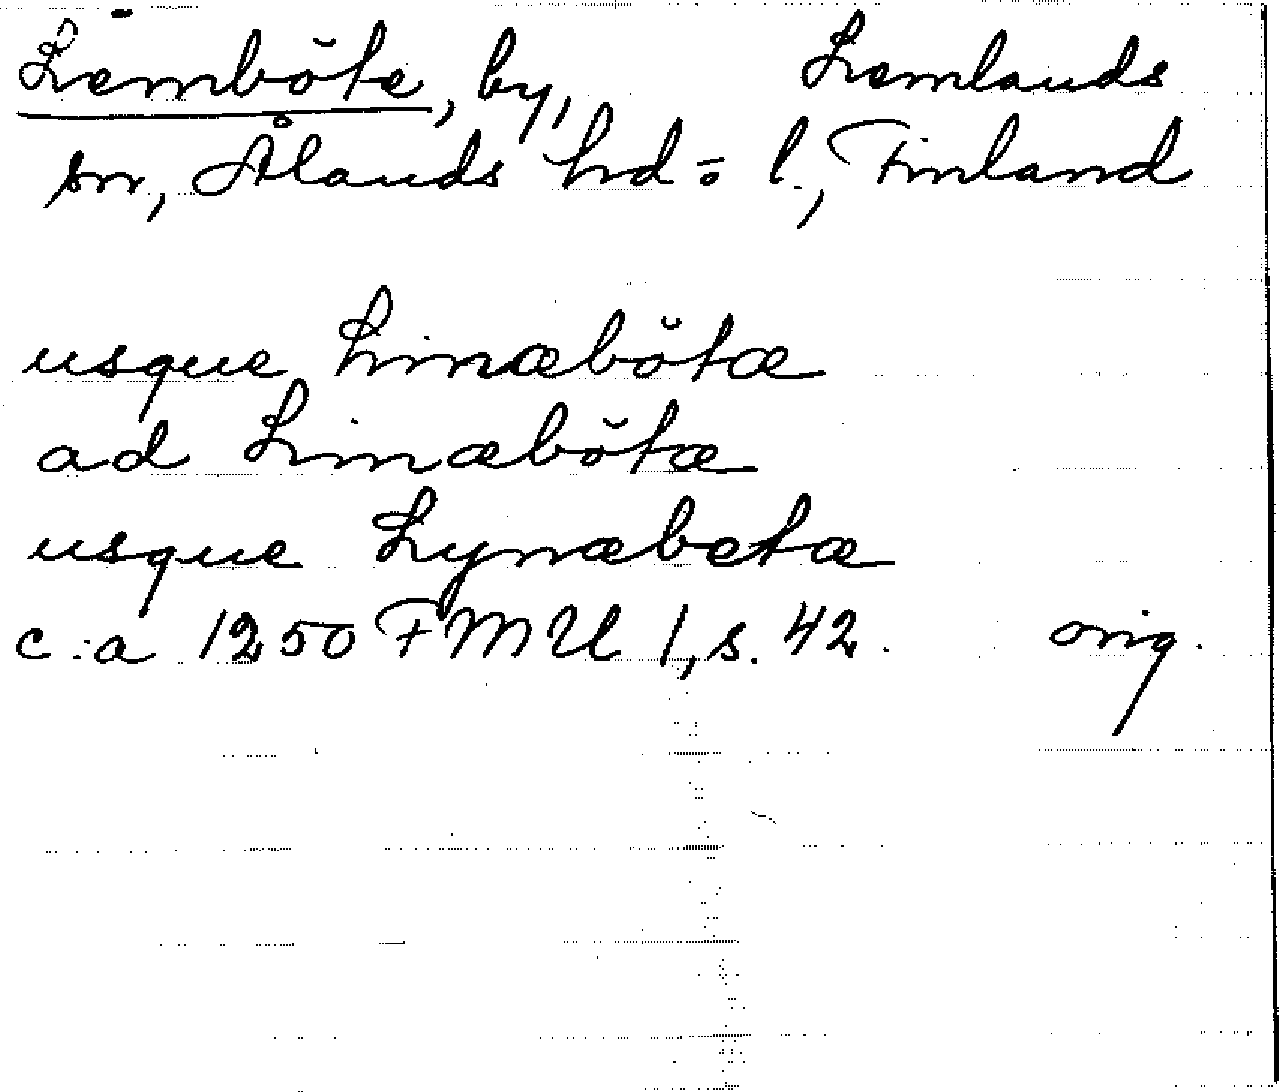 Lemböte, by, Lemlands
sn, Ålands hd o. l., Finland
usque Linæbötæ
ad Linæbötæ
usque Lynæbetæ
c:a 1250 FMU 1, s. 42. orig.